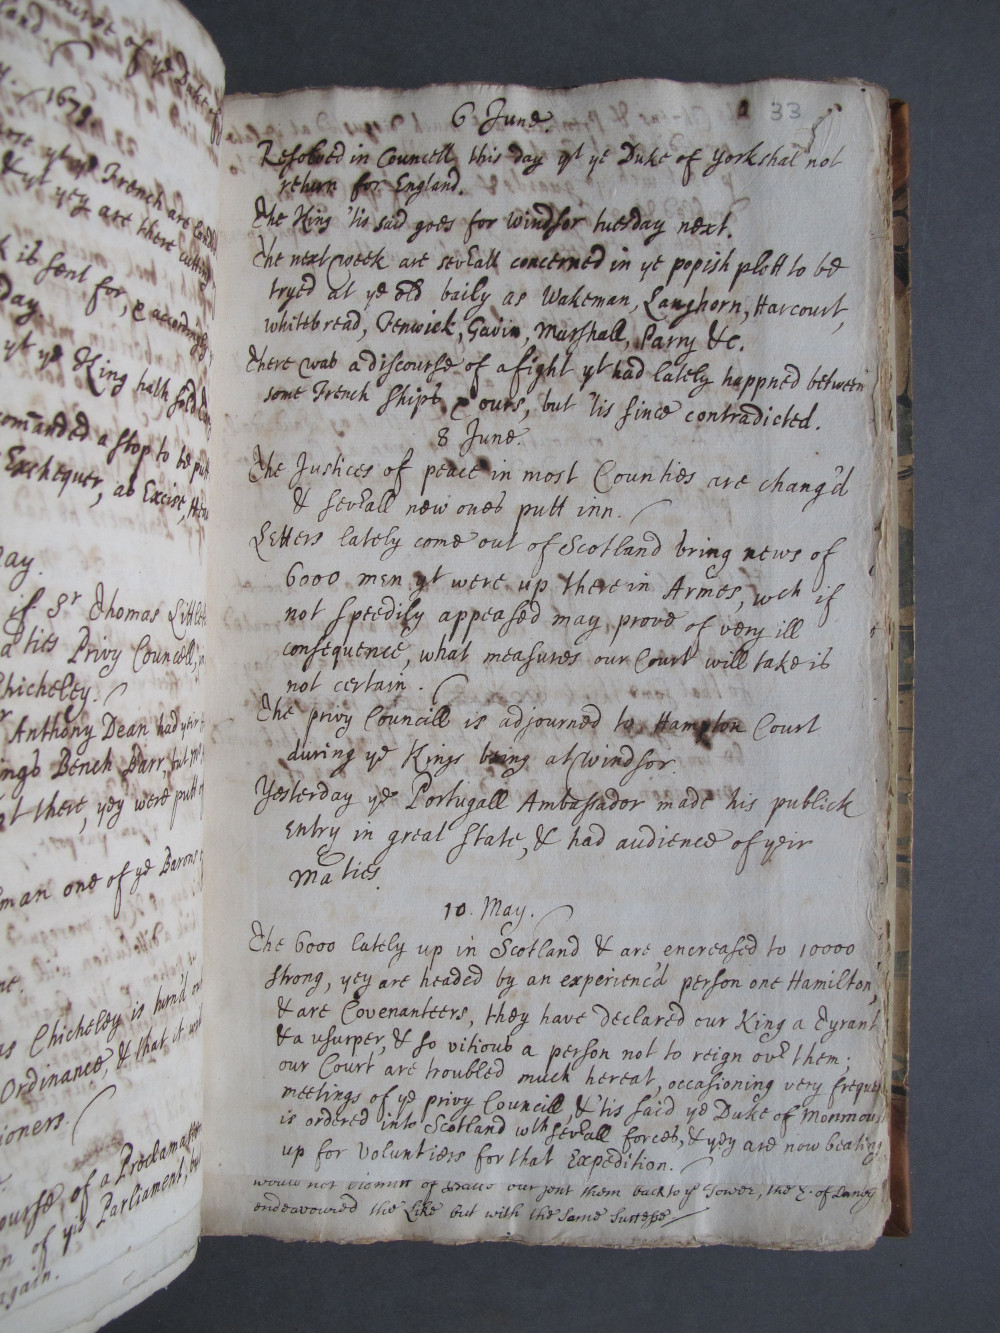 ourse of ye Duke of
land.
1679
ye French are
& yt yey are there cutting
k is sent for, & accordingly
day.
yt ye King hath sold
com̄anded a stop to be putt
Exchequer, as Excise,
ay.
if Sr Thomas Littleto
aties Privy Councell,
Chicheley.
Anthony Dean had yeir
ings Bench Barr, but
at there, yey were putt
man one of ye Barons
as Chicheley is turn'd
Ordinance, & that it
ioners.
ourse, of a Proclamation
n of yis Parliament, but
again.
33
6 June.
Resolved in Councell this day yt ye Duke of York shal not
return for England.
The King 'tis said goes for Windsor tuesday next.
The next week are severall concerned in ye popish plott to be
tryed at ye old baily as Wakeman, Langhorn, Harcourt,
Whitebread, Fenwick, Gavin, Marshall, Parry &c.
There was a discourse of a fight yt had lately happned between
some French ships & ours, but 'tis since contradicted.
8 June.
The Justices of peace in most Counties are chang'd
& severall new ones putt inn.
Letters lately come out of Scotland bring news of
6000 men yt were up there in Armes, wch if
not speedily appeased may prove of very ill
consequence, what measures our Court will take is
not certain.
The privy Councill is adjourned to Hampton Court
during ye Kings being at Windsor.
Yesterday ye Portugall Ambassador made his publick
Entry in great state, & had audience of yeir
Maties.
10. May.
The 6000 lately up in Scotland & are encreased to 10000
strong, yey are headed by an experienc'd person one Hamilton,
& are Covenanteers, they have declared our King a Tyrant
& a usurper, & so vitious a person not to reign over them;
our Court are troubled much hereat, occasioning very freque
meetings of ye privy Councill, & 'tis said ye Duke of Monmou
is ordered into Scotland wth severall forces, & yey are now beating
up for Voluntiers for that Expedition.
would not of Baile our sent them back to ye Tower, the E. of Danby
endeavoured the Like but with the same Suttesse